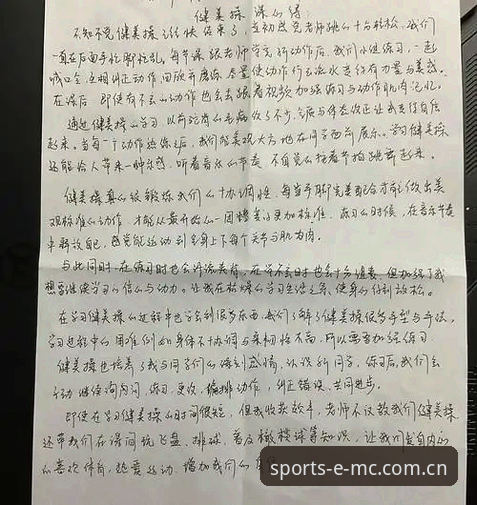 健美操 课心得
不知不觉健美操之旅快结束了，去初感觉老师跳的十分轻松，我们
一直在后面手忙脚忙乱。每节课跟老师学完新动作后，我们小组练习，一起
喊口令，互相纠正动作，回放并磨练，尽量使动作行云流水并行有力量与美感。
在课后，即使有不会的动作也会去跟着视频加强练习与动作肌肉记忆。
通过健美操的学习，以前驼背的毛病改了不少，含胸与体态改正让我变得自信
起来。当每一个动作连练之后，我们能美观大方地在同学面前展示。学习健美操
还能给人带来一种乐感，听着音乐的节奏，不自觉的按着节拍跳舞起来。
健美操真的能锻炼我们的协调性，每当手脚完美配合才能做出美
观标准的动作，才能从最开始的一团糟变得更加标准。练习的时候，在音乐节奏
中释放自己，感觉能运动到全身上下每个关节与肌肉。
与此同时，在练习时也会汗流浃背，在学不会时也会十分沮丧，但加强了我
想要继续学习的信心与动力。让我在枯燥的学习生活之余，使身心得到放松。
在学习健美操的过程中也学会到很多东西，我们了解了健美操很多手型与手位，
学习过程中的困难例如身体不协调与柔韧性不高，所以需要加强练习
健美操也培养了我与同学们的深刻感情，认识新同学，练习后，我们会
主动继续询问问，练习，更改，编排动作，纠正错误，共同进步。
即使在学习健美操的时间很短，但我收获颇丰，老师不仅教我们健美操
还带我们在课间玩飞盘，排球，普及橄榄球等知识，让我们发自内心
的喜欢体育，热爱运动，增加我们的
sports-e-mc.com.cn